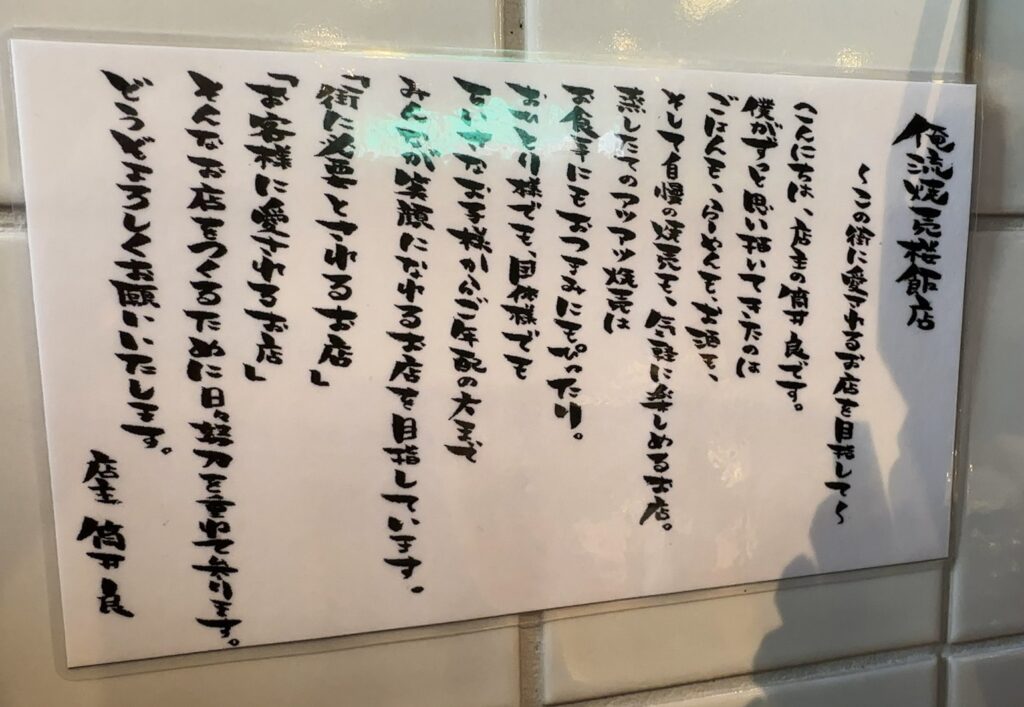 俺流焼売楼飯店
〜この街に愛されるお店を目指して〜
こんにちは、店主の筒井良です。
僕がずっと思い描いてきたのは
ごはんも、らーめんも、お酒も、
そして自慢の焼売も、気軽に楽しめるお店。
蒸したてのアツアツ焼売は
お食事にもおつまみにもぴったり。
おひとり様でも、団体様でも
ちいさなお子様からご年配の方まで
みんなが笑顔になれるお店を目指しています。
「街に必要とされるお店」
「お客様に愛されるお店」
そんなお店をつくるために日々努力を重ねて参ります。
どうぞよろしくお願いいたします。
店主 筒井良